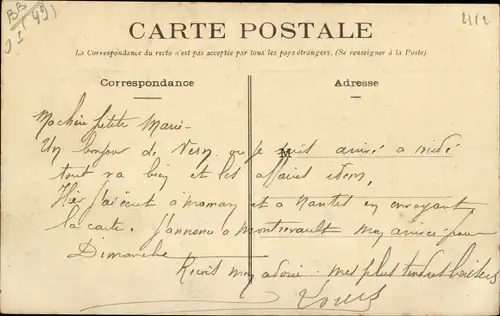 BB
(49)
2112
CARTE POSTALE
La Correspondance du recto n'est pas acceptée par tous les pays étrangers. (Se renseigner à la Poste)
Correspondance
Adresse
Ma chère petite Marie
Un bonjour de Vern où je suis arrivé a midi
tout va bien et les affaires idem,
Hier j'ai écrit à maman et a Nantes en envoyant
la carte. j'annonce a Montrevault mon arrivée pour
Dimanche
Reçois mon adorée mes plus tendres baisers
Louis